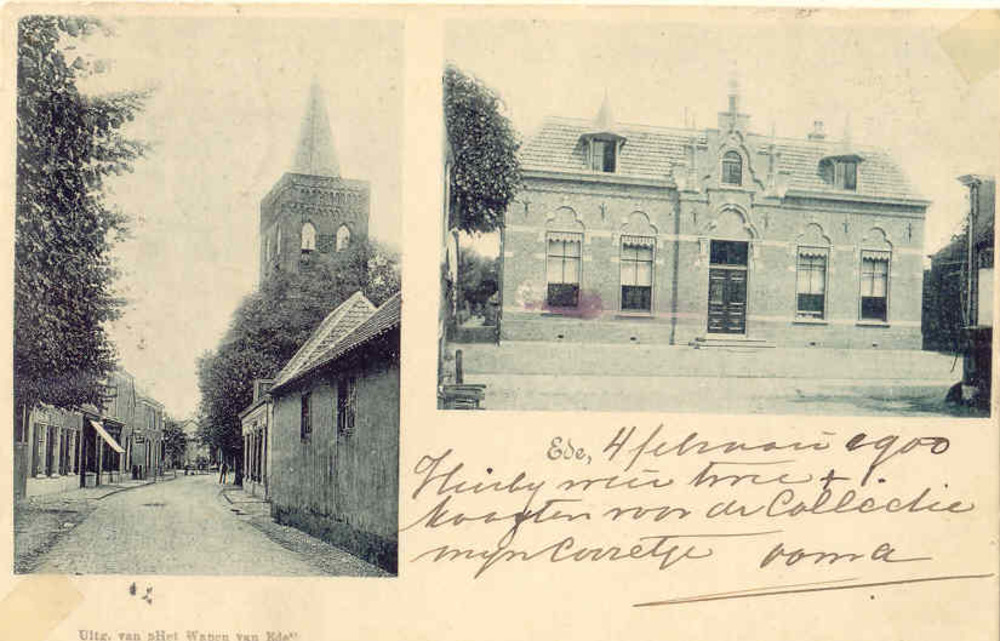 Ede, 4 februari 1900
Hierby weer twee
Kaarten voor de Collectie
mijn Corretje ooma
Uitg. van »Het Wapen van Ede«